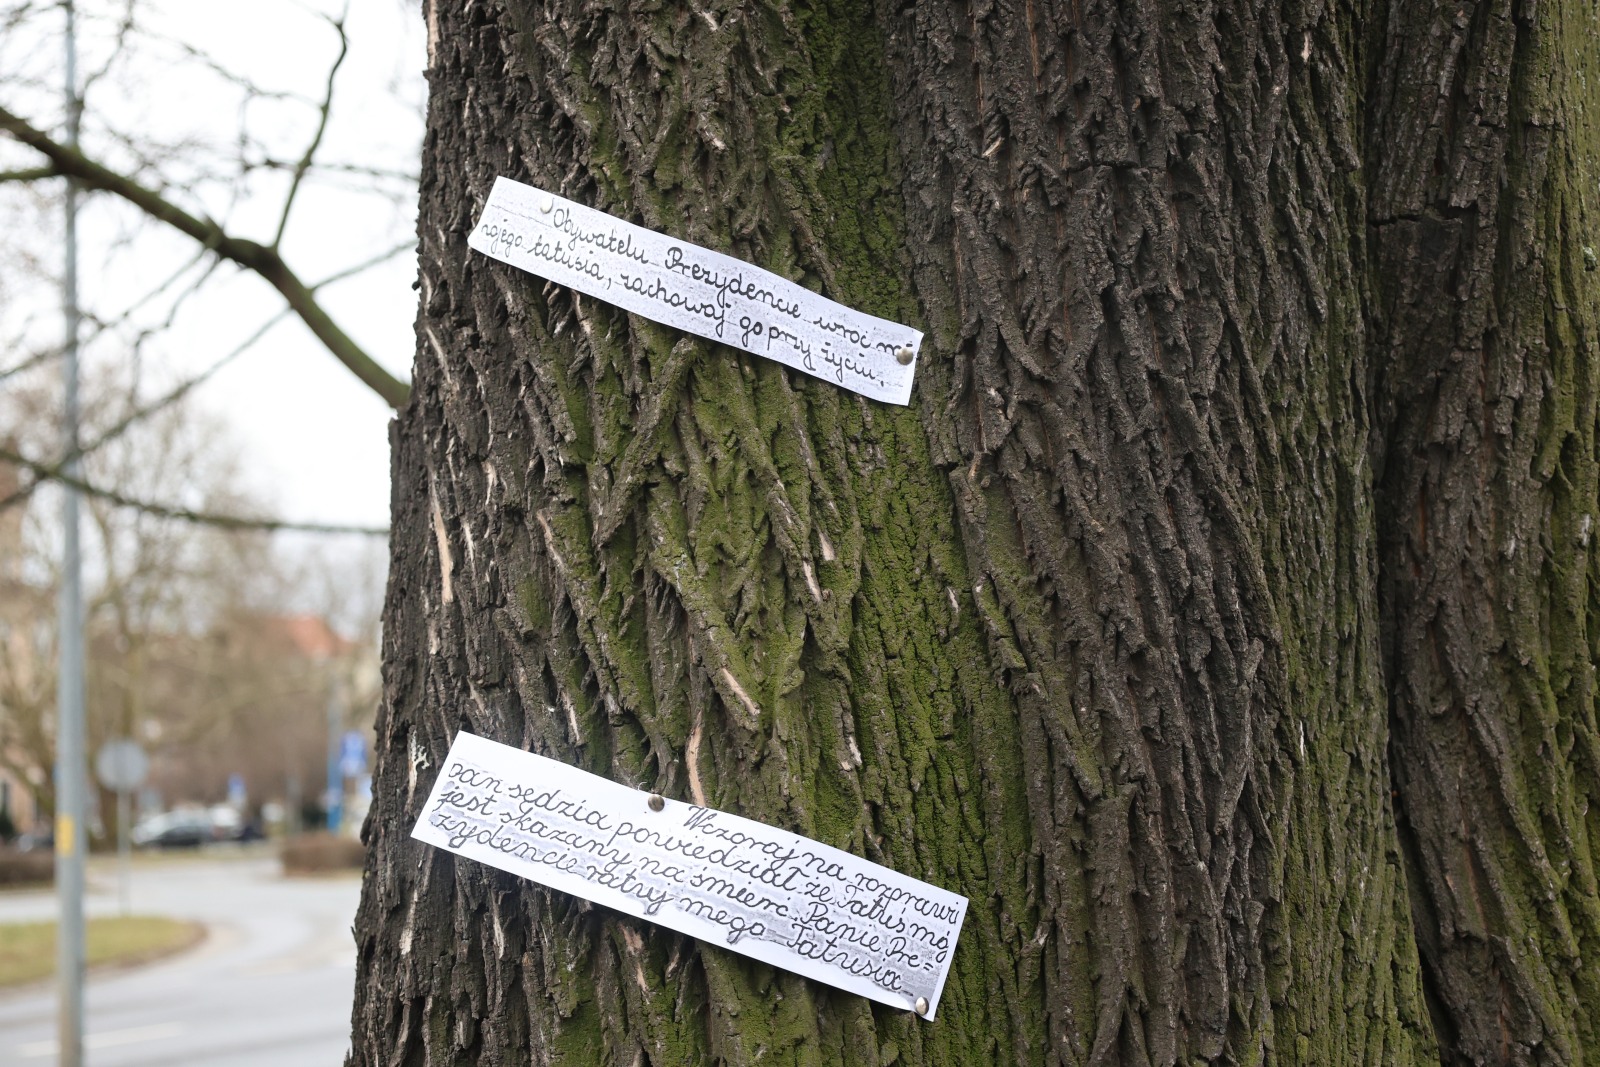 Obywatelu Prezydencie wróć mi
mojego tatusia, zachowaj go przy życiu,
Wczoraj na rozprawi
pan sędzia powiedział że Tatuś mój
jest skazany na śmierć. Panie Pre=
zydencie ratuj mego Tatusia_